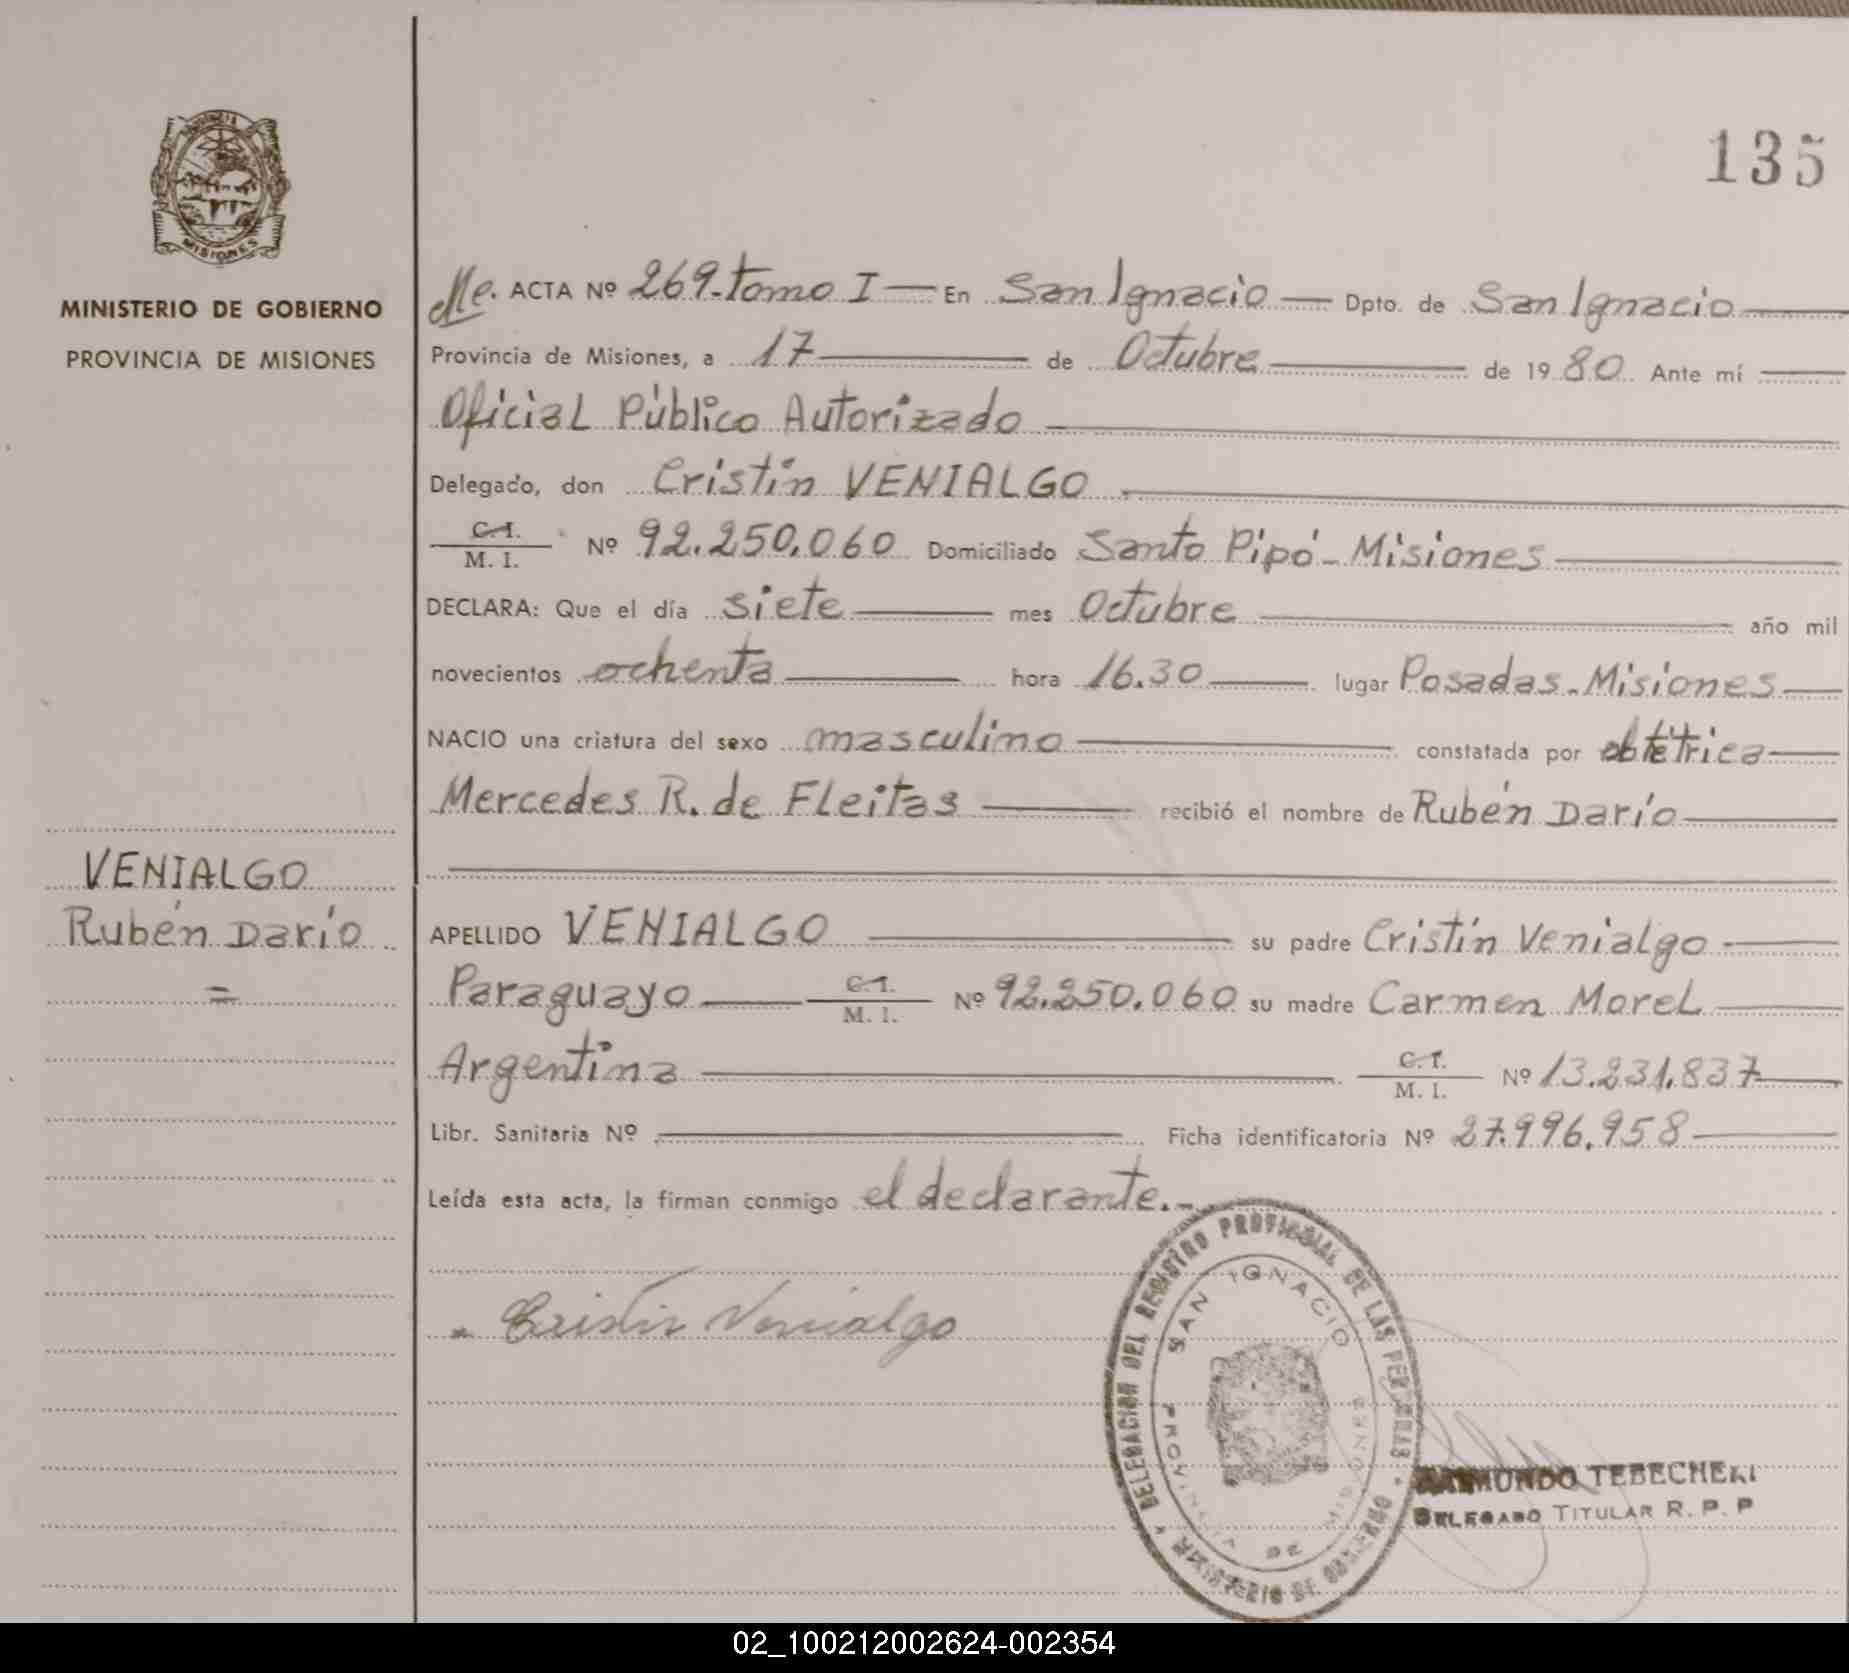 135
PROVINCIA
MISIONES
MINISTERIO DE GOBIERNO
PROVINCIA DE MISIONES
ACTA Nº 269-tomo I — En San Ignacio — Dpto. de San Ignacio
Provincia de Misiones, a 17 de Octubre de 1980 Ante mí
Oficial Público Autorizado
Delegado, don Cristín VENIALGO
C. I. / M. I. Nº 92.250.060 Domiciliado Santo Pipó - Misiones
DECLARA: Que el día siete mes Octubre año mil
novecientos ochenta hora 16.30 lugar Posadas - Misiones
NACIO una criatura del sexo masculino constatada por obtétrica
Mercedes R. de Fleitas recibió el nombre de Rubén Darío
VENIALGO
Rubén Darío
=
APELLIDO VENIALGO su padre Cristín Venialgo
Paraguayo C. I. / M. I. Nº 92.250.060 su madre Carmen Morel
Argentina C. I. / M. I. Nº 13.231.837
Libr. Sanitaria Nº — Ficha identificatoria Nº 27.996.958
Leída esta acta, la firman conmigo el declarante.-
Cristin Venialgo
DELEGACION DEL REGISTRO PROVINCIAL DE LAS PERSONAS
SAN IGNACIO
PROVINCIA DE MISIONES
MINISTERIO DE GOBIERNO
RAIMUNDO TEBECHERI
DELEGADO TITULAR R. P. P
02_100212002624-002354